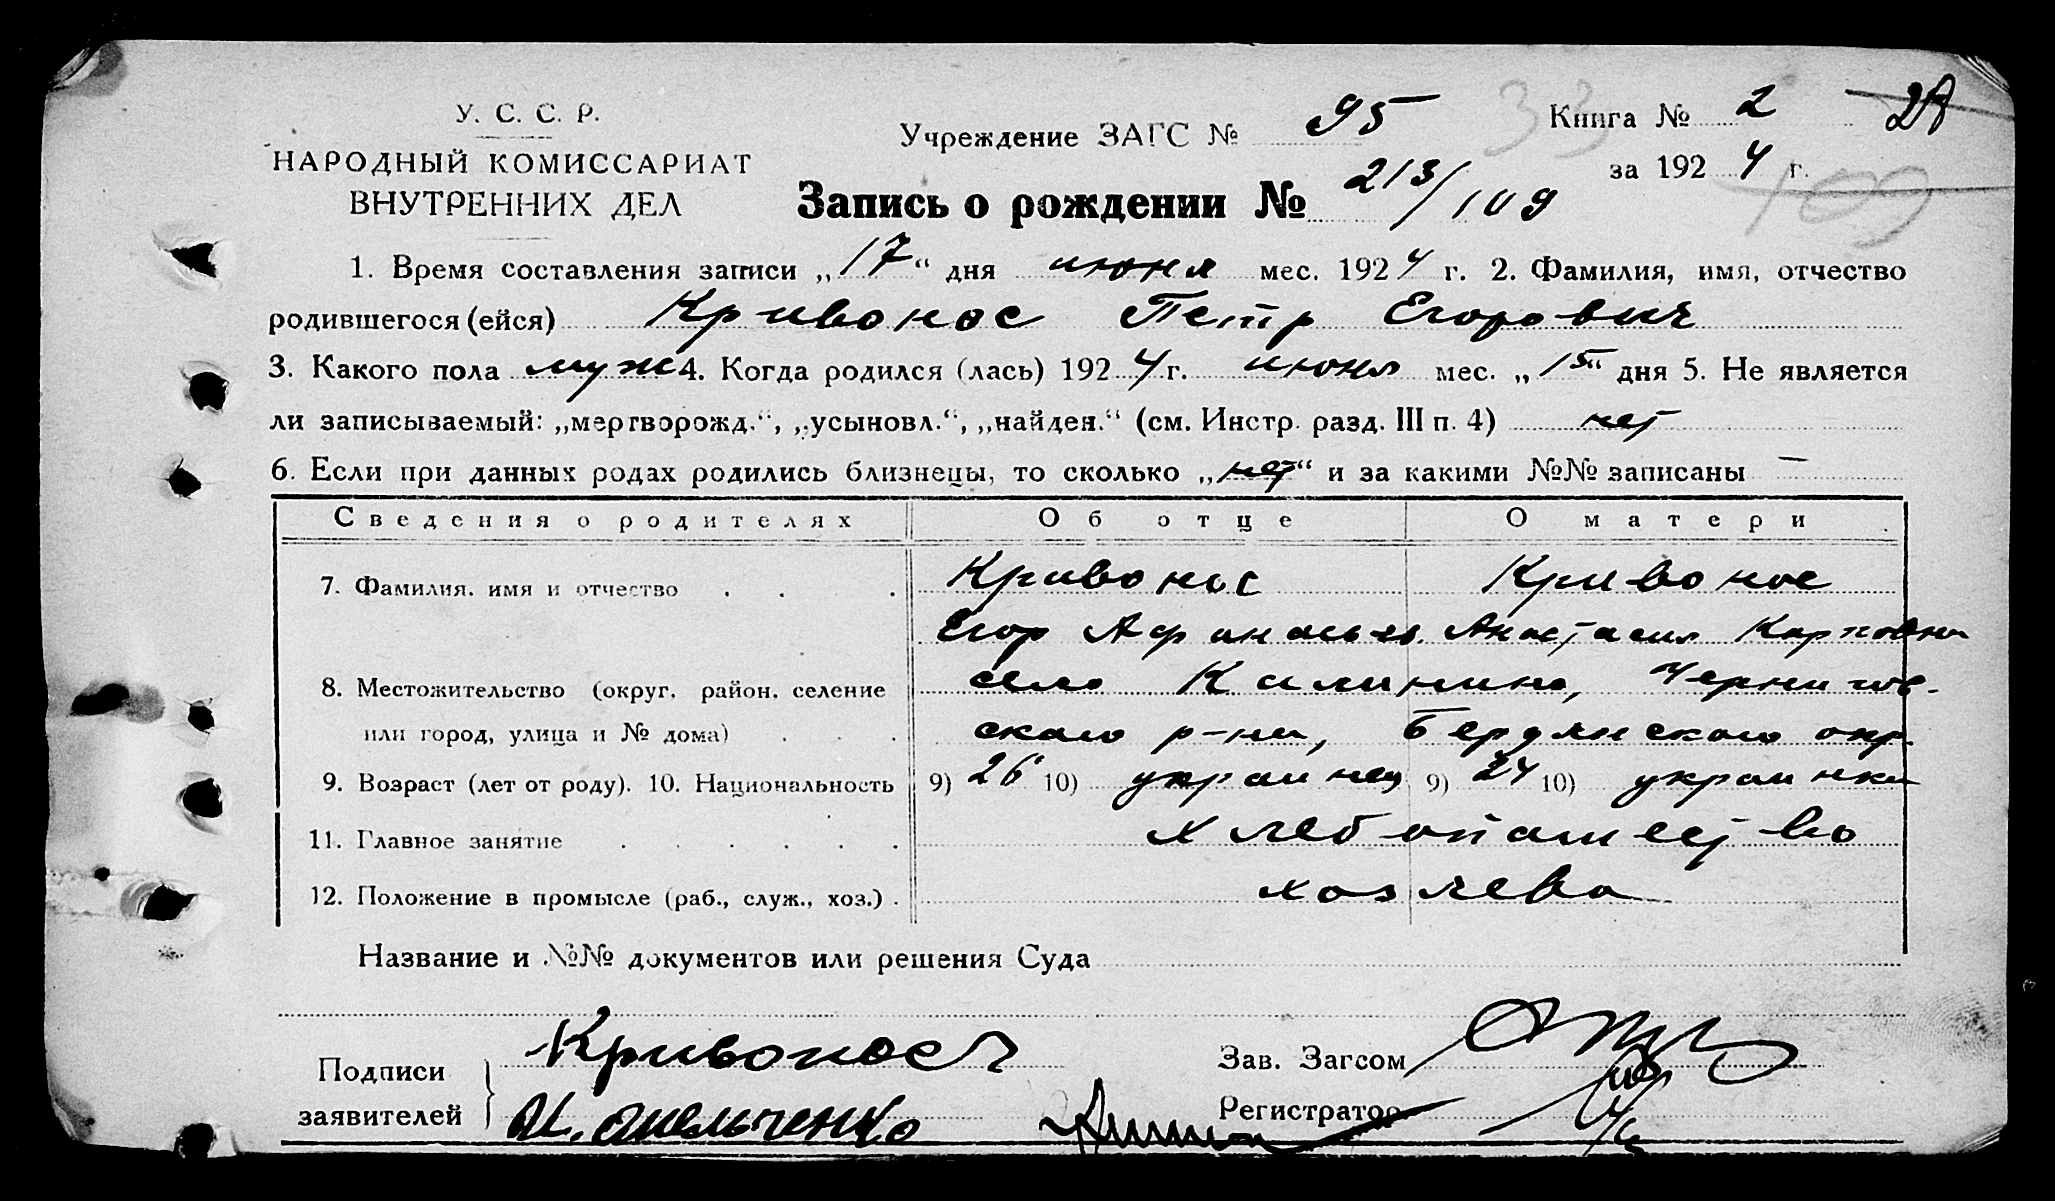 У. С. С. Р.
НАРОДНЫЙ КОМИССАРИАТ
ВНУТРЕННИХ ДЕЛ
Учреждение ЗАГС № 95
33
Книга № 2
28
за 1924 г.
109
Запись о рождении № 213/109
1. Время составления записи „17“ дня июня мес. 1924 г. 2. Фамилия, имя, отчество
родившегося (ейся) Кривонос Петр Егорович
3. Какого пола муж 4. Когда родился (лась) 1924 г. июня мес. „15“ дня 5. Не является
ли записываемый: „мертворожд.“, „усыновл.“, „найден.“ (см. Инстр. разд. III п. 4) нет
6. Если при данных родах родились близнецы, то сколько „нет“ и за какими №№ записаны —
Сведения о родителях Об отце О матери
7. Фамилия, имя и отчество Кривонос Кривонос
Егор Афанасьев. Анастасия Карповна
8. Местожительство (округ, район, селение село Калинино, Чернигов-
или город, улица и № дома) ского р-на, Бердянского окр.
9. Возраст (лет от роду). 10. Национальность 9) 26 10) украинец 9) 24 10) украинка
11. Главное занятие хлебопашество
12. Положение в промысле (раб., служ., хоз.) хозяева
Название и №№ документов или решения Суда
Подписи заявителей
Кривонос
Зав. Загсом
Регистратор